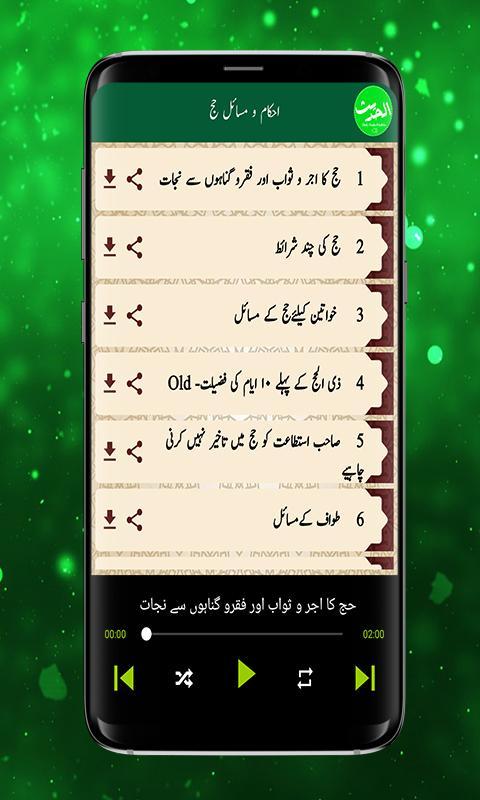 احکام و مسائل حج
الحدیث
1 حج کا اجر و ثواب اور فقرو گناہوں سے نجات
2 حج کی چند شرائط
3 خواتین کیلئے حج کے مسائل
4 ذی الحج کے پہلے ۱۰ ایام کی فضیلت- Old
5 صاحب استطاعت کو حج میں تاخیر نہیں کرنی
چاہیے
6 طواف کے مسائل
حج کا اجر و ثواب اور فقرو گناہوں سے نجات
00:00
02:00